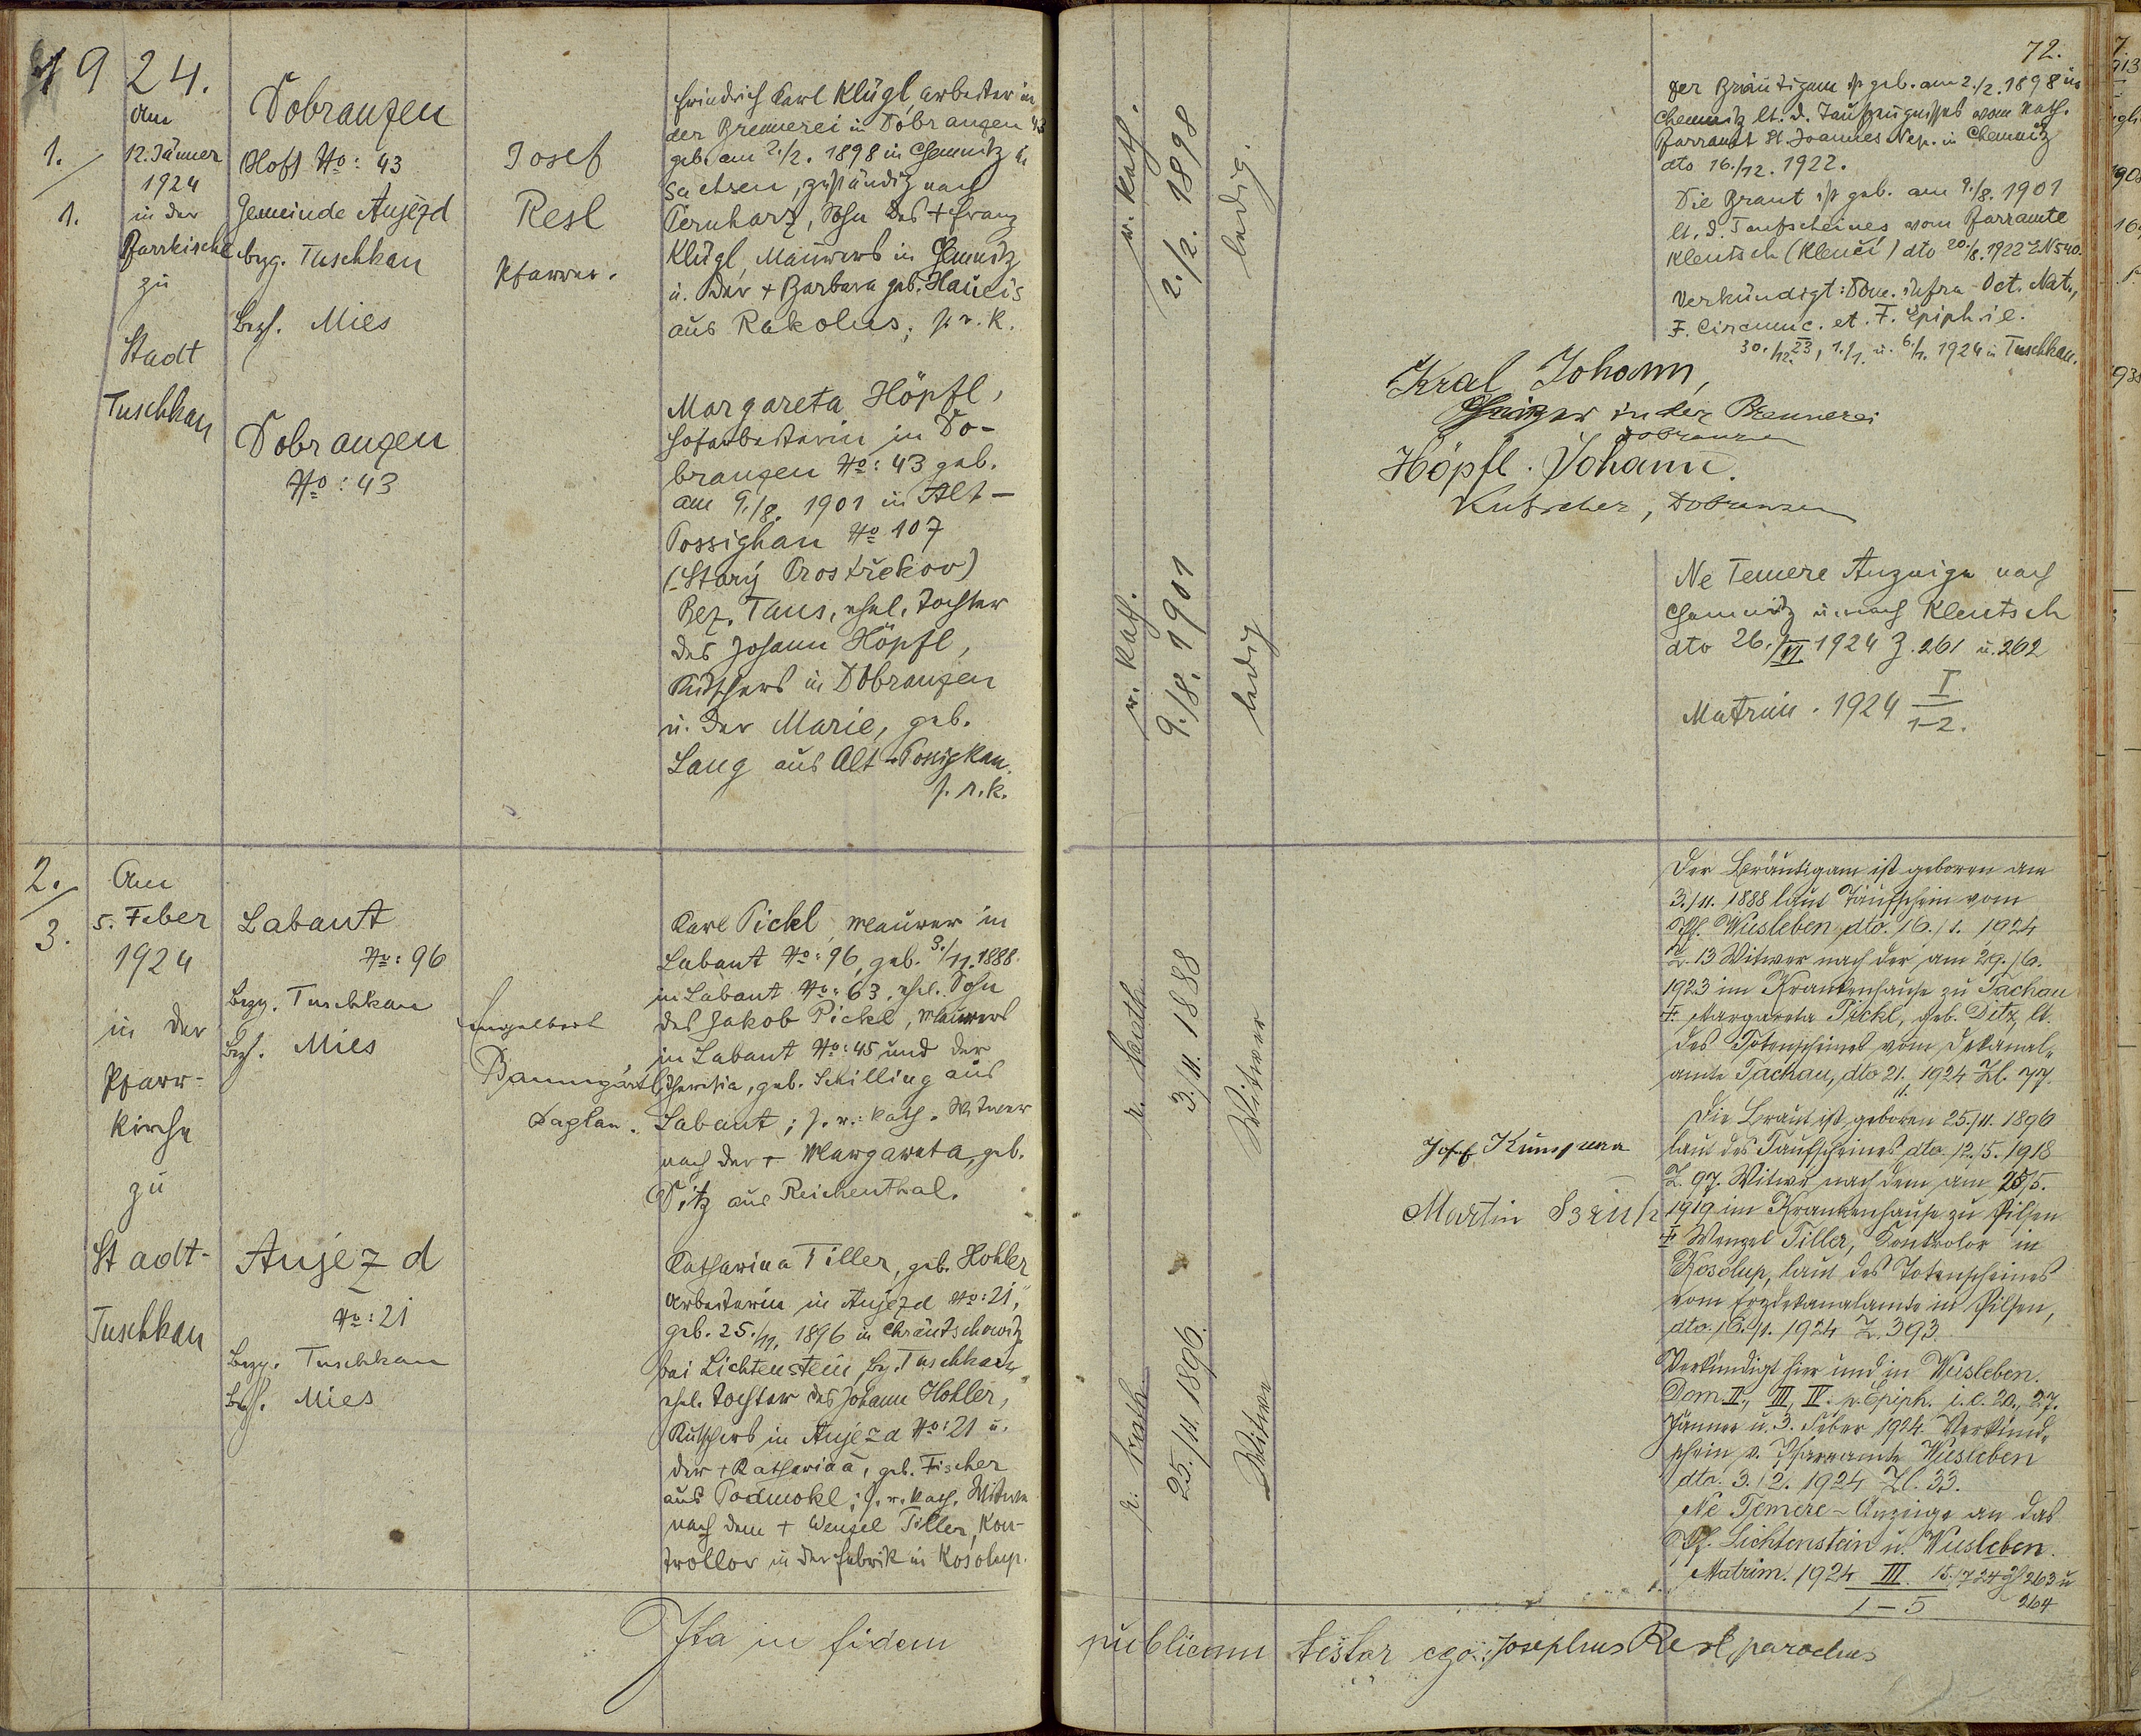 1924.
1./
1.
am
12. Jänner
1924
in der
Pfarrkirche
zu
Stadt
Tuschkau
Dobranzen
(Hof) No: 43
Gemeinde Aujezd
bezg. Tuschkau
Bezh. Mies
Dobranzen
No: 43
Josef
Resl
Pfarrer.
Friedrich Karl Klügl, Arbeiter in
der Brennerei in Dobranzen 43
geb. am 2./2. 1898 in Chemnitz in
Sachsen, zuständig nach
Pernharz, Sohn des + Franz
Klügl, Maurers in Chemnitz
u. der + Barbara geb. Haucis
aus Rakolus; s. r. k.
Margareta Höpfl,
Hofarbeiterin in Do-
branzen No: 43 geb.
am 9./8. 1901 in Alt-
Possighau No 107
(Starý Prostřekov)
Bez. Taus, ehel. Tochter
des Johann Höpfl,
Kutschers in Dobranzen
u. der Marie, geb.
Lang aus Alt-Possigkau.
s. r. k.
r. kath.
2./2. 1898
ledig.
r. kath.
9./8. 1901
ledig
Kral Johann,
Heizer in der Brennerei
Dobranzen
Höpfl. Johann.
Kutscher, Dobranzen
72.
Der Bräutigam ist geb. am 2./2. 1898 in
Chemnitz lt. d. Taufzeugnisses vom kath.
Pfarramt St. Joannes Nep. in Chemnitz
dto 16./12. 1922.
Die Braut ist geb. am 9./8. 1901
lt. d. Taufscheines vom Pfarramte
Klentsch (Klenčí) dto 20./8. 1922 EN 540.
Verkündigt: Dom. infra Oct. Nat.,
F. Circumc. et. F. Epiph. i. e.
30./12. 23, 1./1. u. 6./1. 1924 in Tuschkau.
Ne Temere Anzeige nach
Chemnitz u. nach Klentsch
dto 26./VI 1924 Z. 261 u. 262
Matrim. 1924 I
1-2.
2./
3.
Am
5. Feber
1924
in der
Pfarr-
kirche
zu
Stadt-
Tuschkau
Labant
No: 96
Bezg. Tuschkau
Bezh. Mies
Aujezd
No: 21
Bezg. Tuschkau
Bezh. Mies
Engelbert
Baumgärtl
Kaplan.
Karl Pickl, Maurer in
Labant No: 96, geb. 3./11. 1888.
in Labant No: 63, ehel. Sohn
des Jakob Pickl, Maurers
in Labant No: 45 und der
Theresia, geb. Schilling aus
Labant; s. r. kath. Witwer
nach der + Margareta, geb.
Ditz aus Reichenthal.
Katharina Tiller, geb. Hohler
Arbeiterin in Aujezd No: 21,
geb. 25./11. 1896 in Chrantschowitz
bei Lichtenstein, Bz. Tuschkau,
ehel. Tochter des Johann Hohler,
Kutschers in Aujezd No: 21 u.
der + Katharina, geb. Fischer
aus Podmokl; s. r. kath. Witwe
nach dem + Wenzel Tiller, Kon-
trollor in der Fabrik in Kosolup.
r. kath.
3./11. 1888
Witwer
r. kath.
25./11. 1896.
Witwe
Josef
Martin
Der Bräutigam ist geboren am
3./11. 1888 laut Taufschein vom
Pf. Wusleben, dto. 16./1. 1924
Z. 13 Witwer nach der am 29./6.
1923 im Krankenhause zu Tachau
+ Margareta Pickl, geb. Ditz, lt.
des Totenscheines vom Dekanal-
amte Tachau, dto 21./1. 1924 Zl. 77.
Die Braut ist geboren 25./11. 1896
laut des Taufscheines dto 12./5. 1918
Z. 97. Witwe nach dem am 28./5.
1919 im Krankenhause zu Pilsen
+ Wenzel Tiller, Kontrolor in
Kosolup, laut des Totenscheines
vom Erzdekanalamte in Pilsen,
dto. 16./1. 1924 Z. 393.
Verkündigt hier und in Wusleben.
Dom. II., III., IV. p. Epiph. i. e. 20., 27.
Jänner u. 3. Feber 1924. Verkünd-
schein v. Pfarramte Wusleben
dto. 3./2. 1924 Zl. 33.
Ne Temere-Anzeige an das
Pf. Lichtenstein u. Wusleben.
Matrim. 1924 III. 15./7 24 Z. 263 u
1-5 264
Ita in fidem publicam testor ego: Josephus Resl, parochus